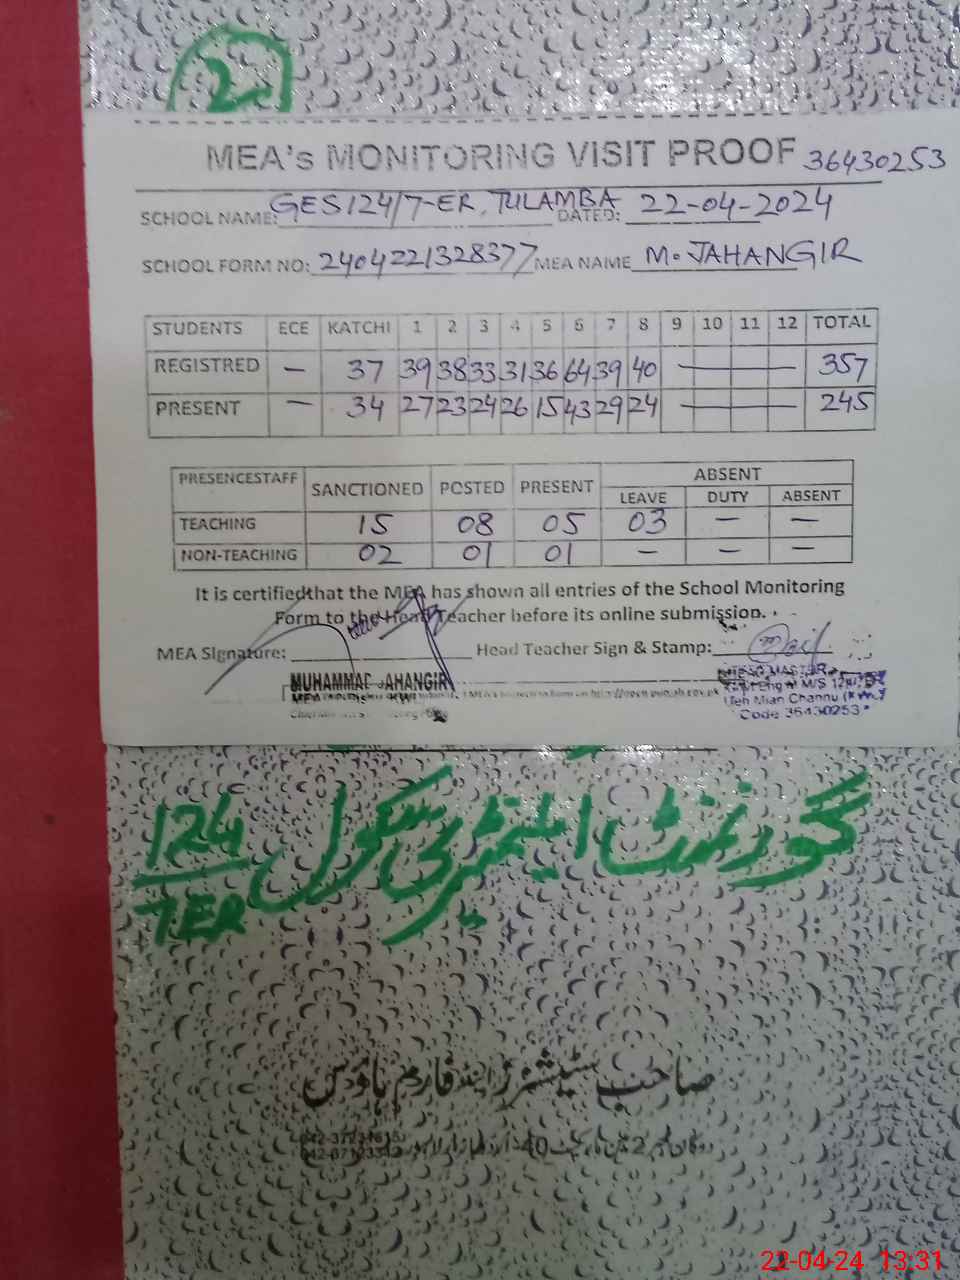 2
MEA's MONITORING VISIT PROOF 36430253
SCHOOL NAME: GES 124/7-ER, TULAMBA DATED: 22-04-2024
SCHOOL FORM NO: 2404221328377 MEA NAME M. JAHANGIR
STUDENTS ECE KATCHI 1 2 3 4 5 6 7 8 9 10 11 12 TOTAL
REGISTRED — 37 39 38 33 31 36 64 39 40 — 357
PRESENT — 34 27 23 24 26 15 43 29 24 — 245
PRESENCESTAFF SANCTIONED POSTED PRESENT ABSENT
LEAVE DUTY ABSENT
TEACHING 15 08 05 03 — —
NON-TEACHING 02 01 01 — — —
It is certified that the MEA has shown all entries of the School Monitoring
Form to the Head Teacher before its online submission.
MEA Signature: Head Teacher Sign & Stamp:
MUHAMMAD JAHANGIR
MEA
M/S 124/7-ER
Teh Mian Channu
Code 36430253
گورنمنٹ ایلیمنٹری سکول 124/7ER
صاحب سٹیشنرز اینڈ فارم ہاؤس
22-04-24 13:31